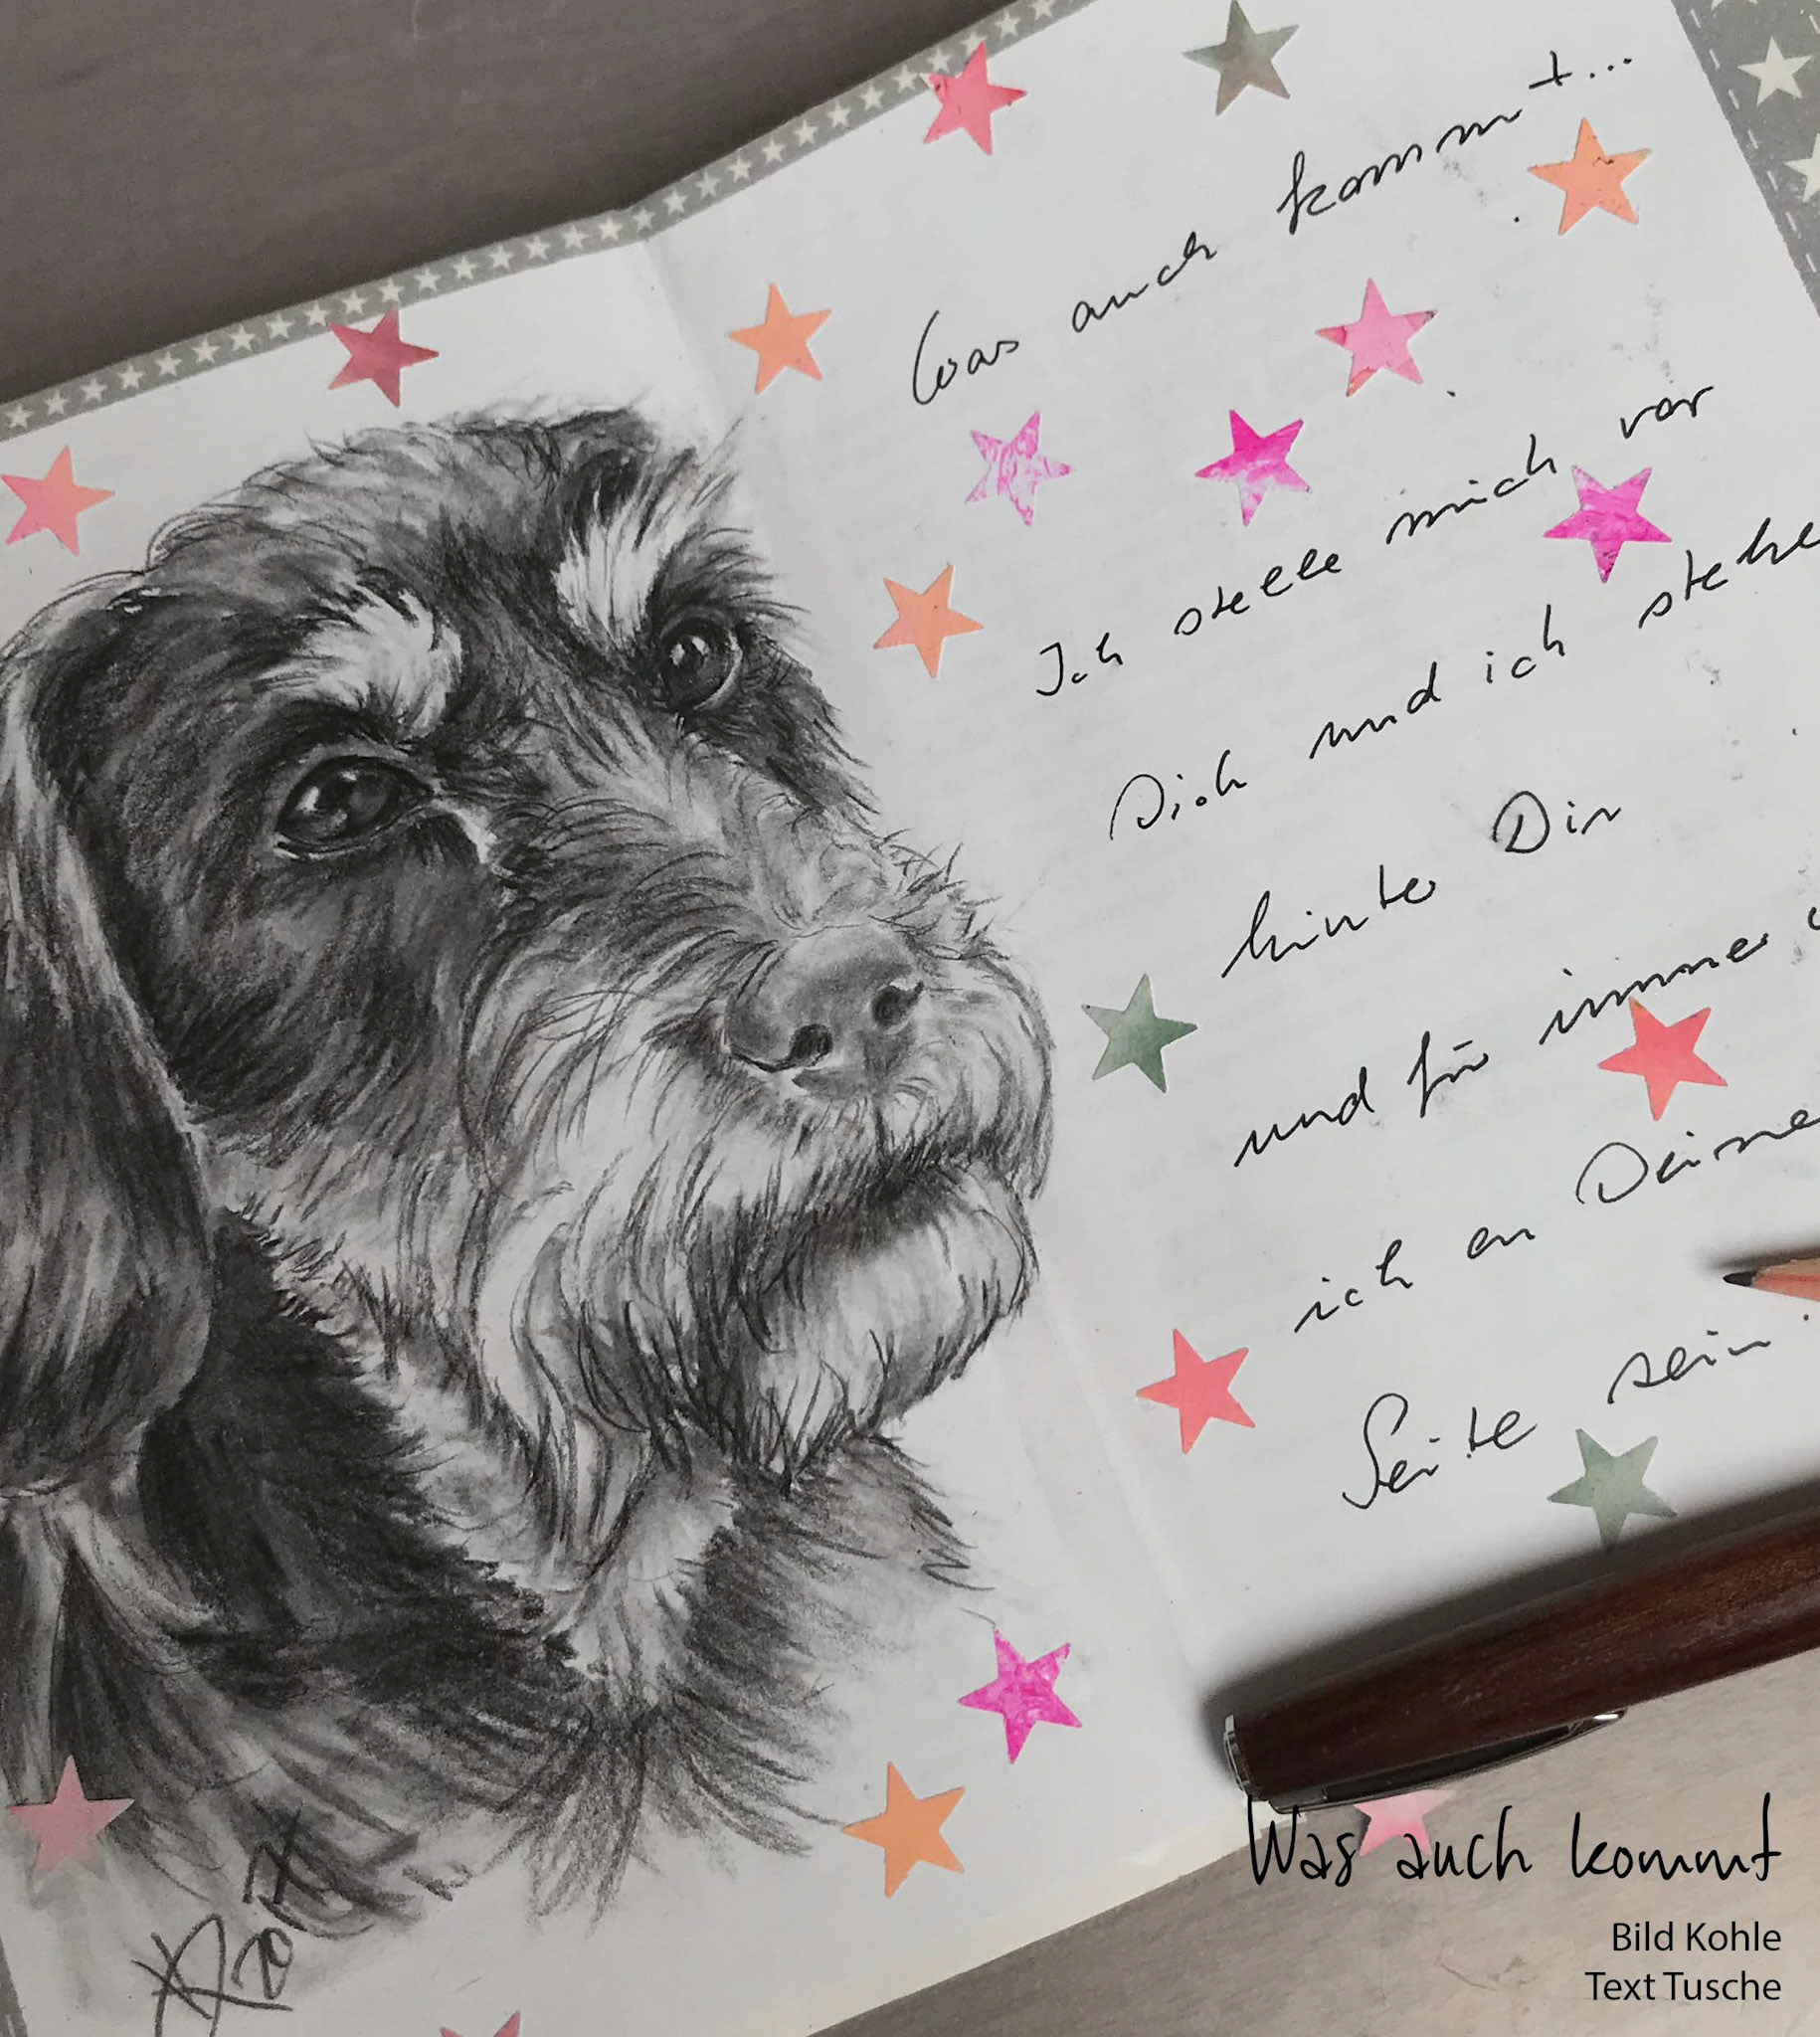 Was auch kommt...
Ich stelle mich vor
Dich und ich stehe
hinter Dir
und für immer
ich an Deine
Seite sein.
2017
Was auch kommt
Bild Kohle
Text Tusche